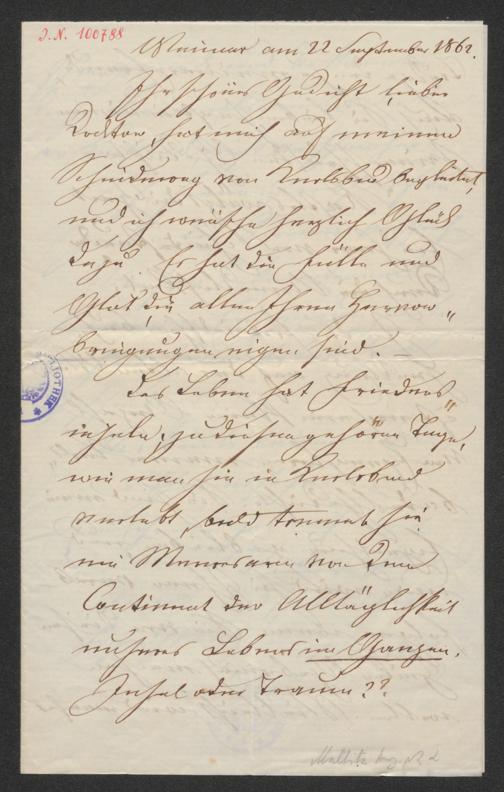 J.N. 100788
Weimar am 22 September 1862.
Ihr schönes Gedicht, lieber
Doctor, hat mich auf meinem
Scheideweg von Karlsbad begleitet,
und ich wünsche herzlich Glück
dazu. Er hat die Fülle und
Glut, die allen Ihren Hervor„
bringungen eigen sind. —
Das Leben hat Friedens„
inseln, zu diesen gehören Tage,
wie man sie in Karlsbad
verlebt, bald trennt sie
ein Meeresarm von dem
Continent der Alltäglichkeit
unseres Lebens im Ganzen.
Insel oder Traum??